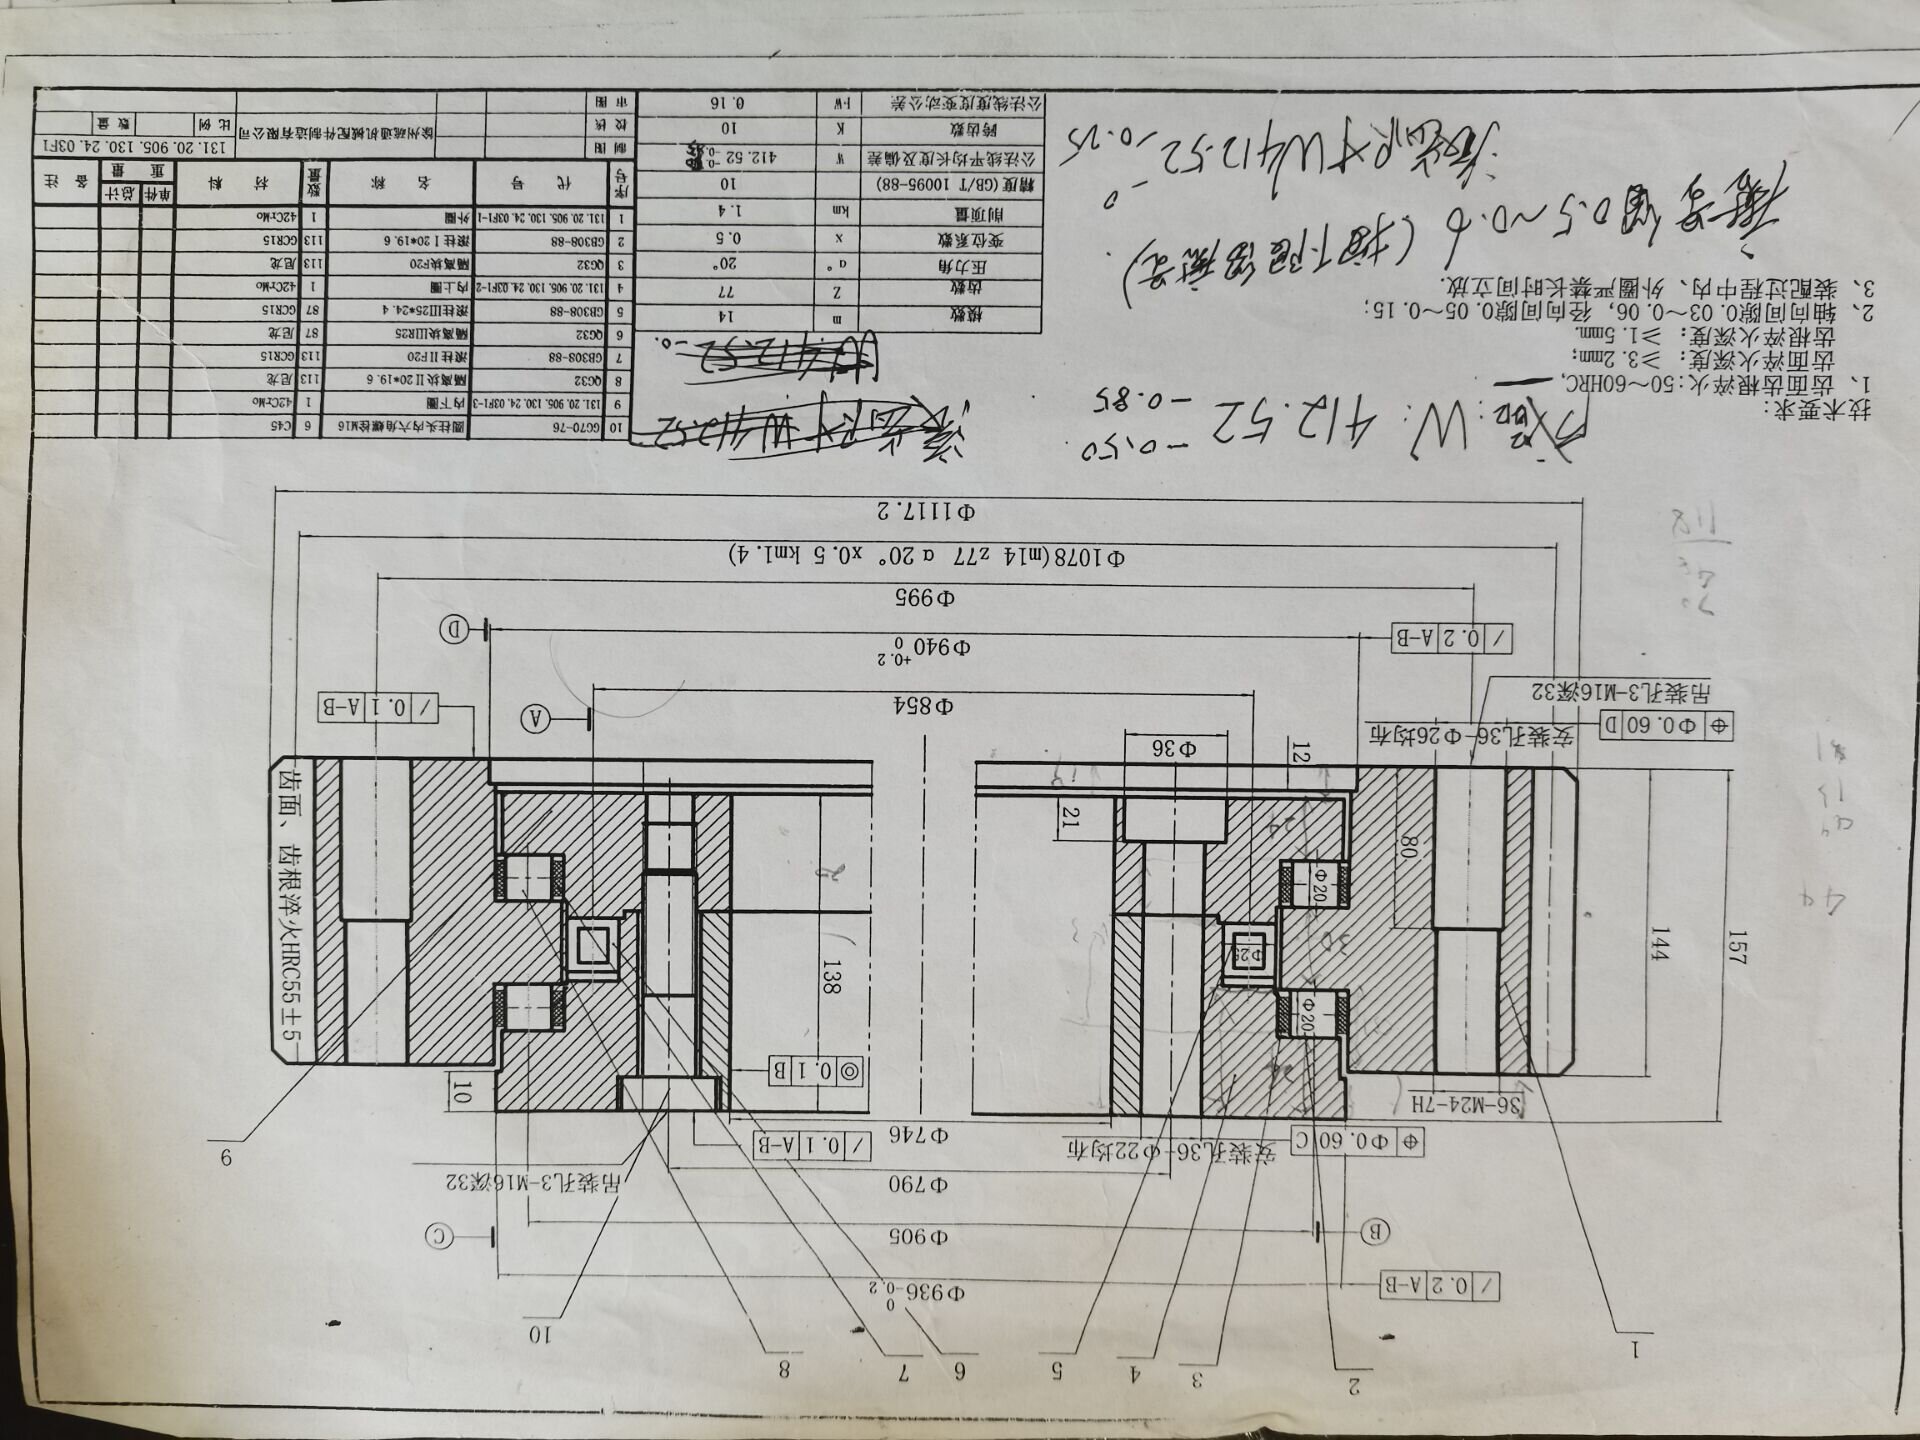 Φ936 0 -0.2
/ 0.2 A-B
Φ905
B
C
Φ790
吊装孔3-M16深32
Φ746
安装孔36-Φ22均布
⌖ Φ0.60 C
/ 0.1 A-B
36-M24-7H
◎ 0.1 B
10
138
144
157
80
Φ20
Φ20
Φ25
30
21
12
Φ36
齿面、齿根淬火HRC55±5
安装孔36-Φ26均布
⌖ Φ0.60 D
吊装孔3-M16深32
Φ854
A
/ 0.1 A-B
Φ940 +0.2 0
/ 0.2 A-B
D
Φ995
Φ1078(m14 z77 α20° x0.5 km1.4)
Φ1117.2
1
2
3
4
5
6
7
8
9
10
技术要求:
1、齿面齿根淬火:50~60HRC,
齿面淬火深度: ≥3.2mm;
齿根淬火深度: ≥1.5mm.
2、轴向间隙0.03~0.06, 径向间隙0.05~0.15;
3、装配过程中内、外圈严禁长时间立放.
W: 412.52 -0.50 -0.85
0.5~0.6
W412.52 0 -0.25
W412.52
W412.52 -0.
模数 m 14
齿数 Z 77
压力角 α° 20°
变位系数 x 0.5
削顶量 km 1.4
精度(GB/T 10095-88) 10
公法线平均长度及偏差 W 412.52
跨齿数 K 10
公法线度变动公差 FW 0.16
10 GG70-76 圆柱头内六角螺栓M16 6 C45
9 131.20.905.130.24.03F1-3 内下圈 1 42CrMo
8 QG32 隔离块Ⅱ20*19.6 113 尼龙
7 GB308-88 滚柱ⅡF20 113 GCR15
6 QG32 隔离块ⅢR25 87 尼龙
5 GB308-88 滚柱Ⅲ25*24.4 87 GCR15
4 131.20.905.130.24.03F1-2 内上圈 1 42CrMo
3 QG32 隔离块F20 113 尼龙
2 GB308-88 滚柱Ⅰ20*19.6 113 GCR15
1 131.20.905.130.24.03F1-1 外圈 1 42CrMo
序号 代号 名称 数量 材料 单件 总计 重量 备注
制图
校核
审图
徐州疏通机械配件制造有限公司
131.20.905.130.24.03F1
比例
数量